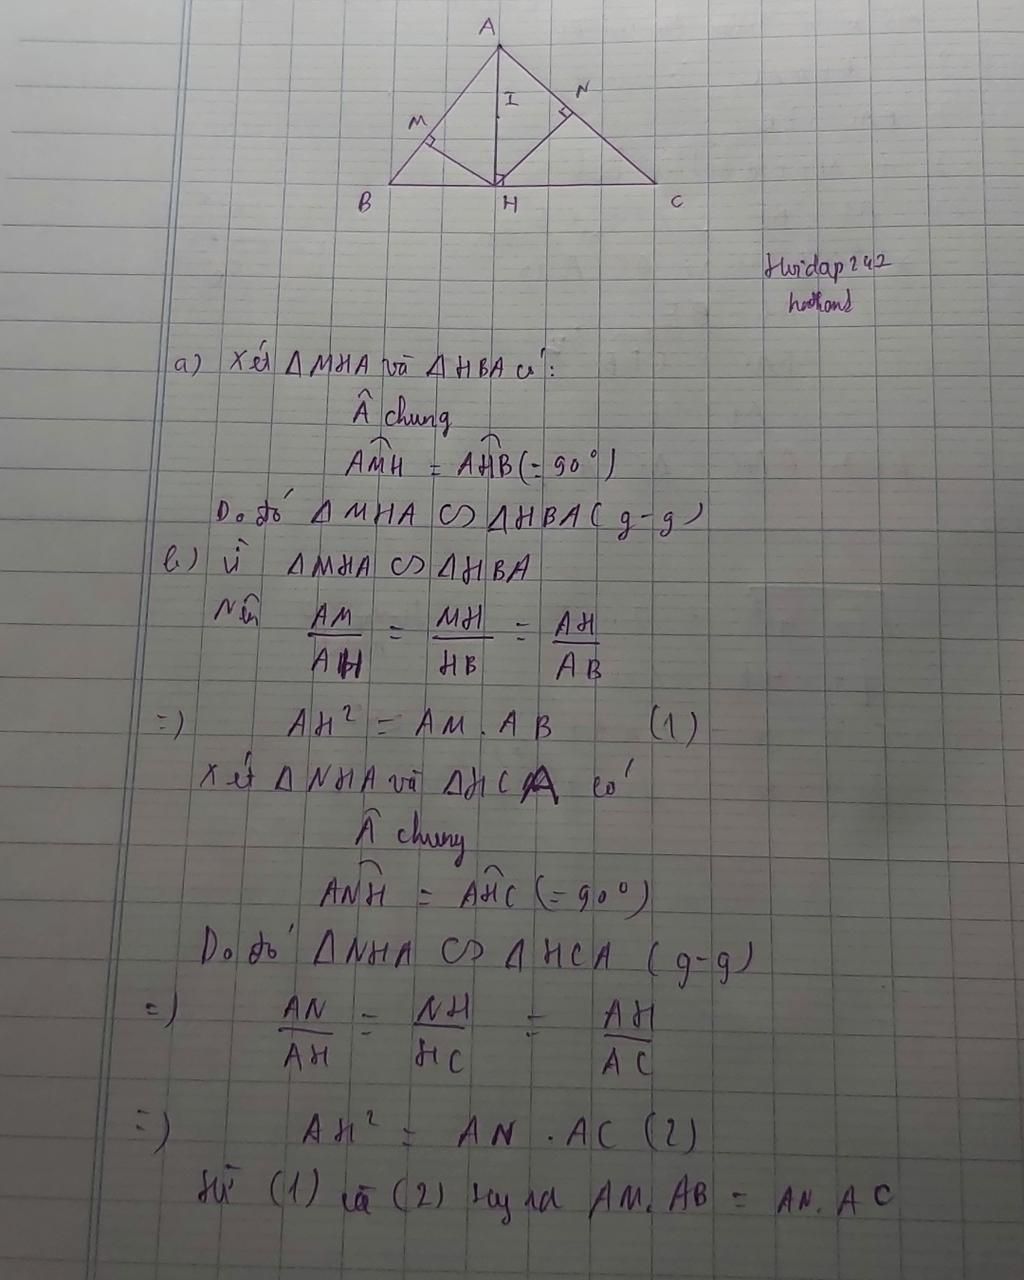 A
I
N
M
B
H
C
a) Xét ΔMHA và ΔHBA có:
Â chung
AM̂H = AĤB (= 90°)
Do đó ΔMHA ∽ ΔHBA (g-g)
b) Vì ΔMHA ∽ ΔHBA
Nên AM/AH = MH/HB = AH/AB
=) AH² = AM . AB (1)
Xét ΔNHA và ΔHCA có
Â chung
AN̂H = AĤC (= 90°)
Do đó ΔNHA ∽ ΔHCA (g-g)
=) AN/AH = NH/HC = AH/AC
=) AH² = AN . AC (2)
Từ (1) và (2) suy ra AM. AB = AN. AC